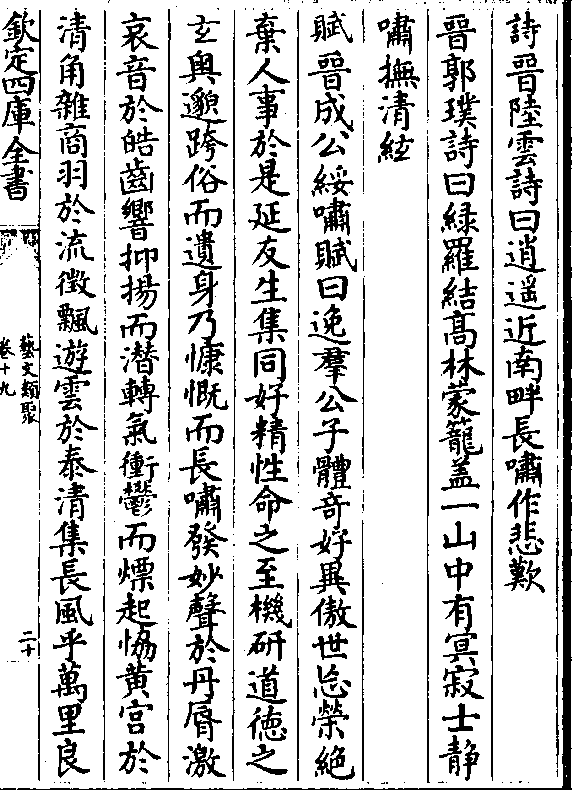 詩晉陸雲詩曰逍遥近南畔長嘯作悲歎
晉郭璞詩曰緑羅結髙林蒙籠盖一山中有㝠寂士静
嘯撫清絃
賦晉成公綏嘯賦曰逸羣公子體奇好異傲世忘榮絶
棄人事於是延友生集同好精性命之至機研道徳之
𤣥奥邈跨俗而遺身乃慷慨而長嘯發妙聲於丹脣激
哀音於皓齒響抑揚而潜轉氣衝鬱而熛起恊黄宫於
清角雜商羽於流徵飄遊雲於泰清集長風乎萬里良
欽定四庫全書
藝文類聚
卷十九
二十